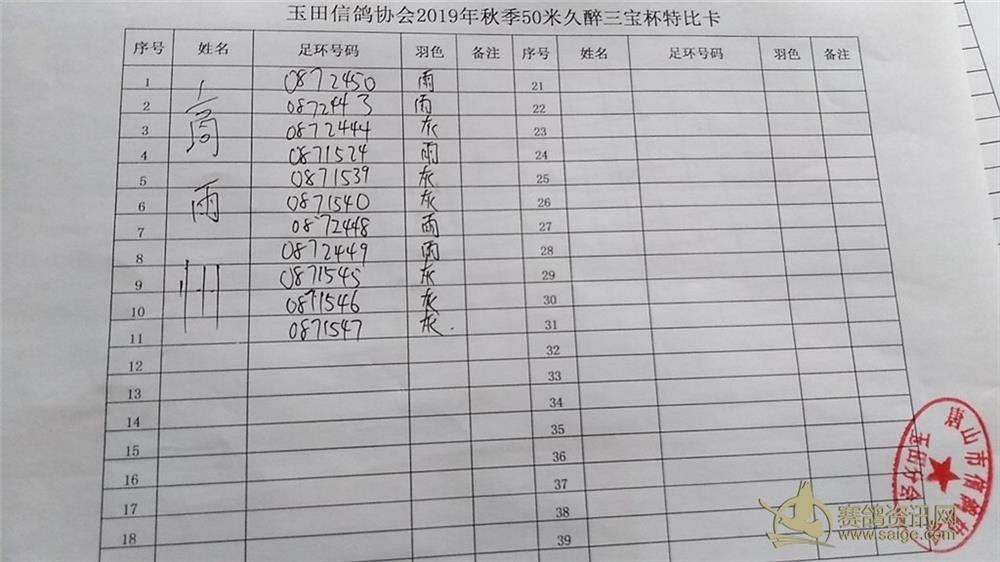 玉田信鸽协会2019年秋季50米久醉三宝杯特比卡
序号 姓名 足环号码 羽色 备注 序号 姓名 足环号码 羽色 备注
1 0872450 雨 21
2 0872443 雨 22
3 0872444 灰 23
4 0871524 雨 24
5 0871539 灰 25
6 0871540 灰 26
7 0872448 雨 27
8 0872449 雨 28
9 0871545 灰 29
10 0871546 灰 30
11 0871547 灰. 31
12 32
13 33
14 34
15 35
16 36
17 37
18 38
39
高
雨
唐山市信鸽协会
玉田分会
赛鸽资讯网
www.saige.com